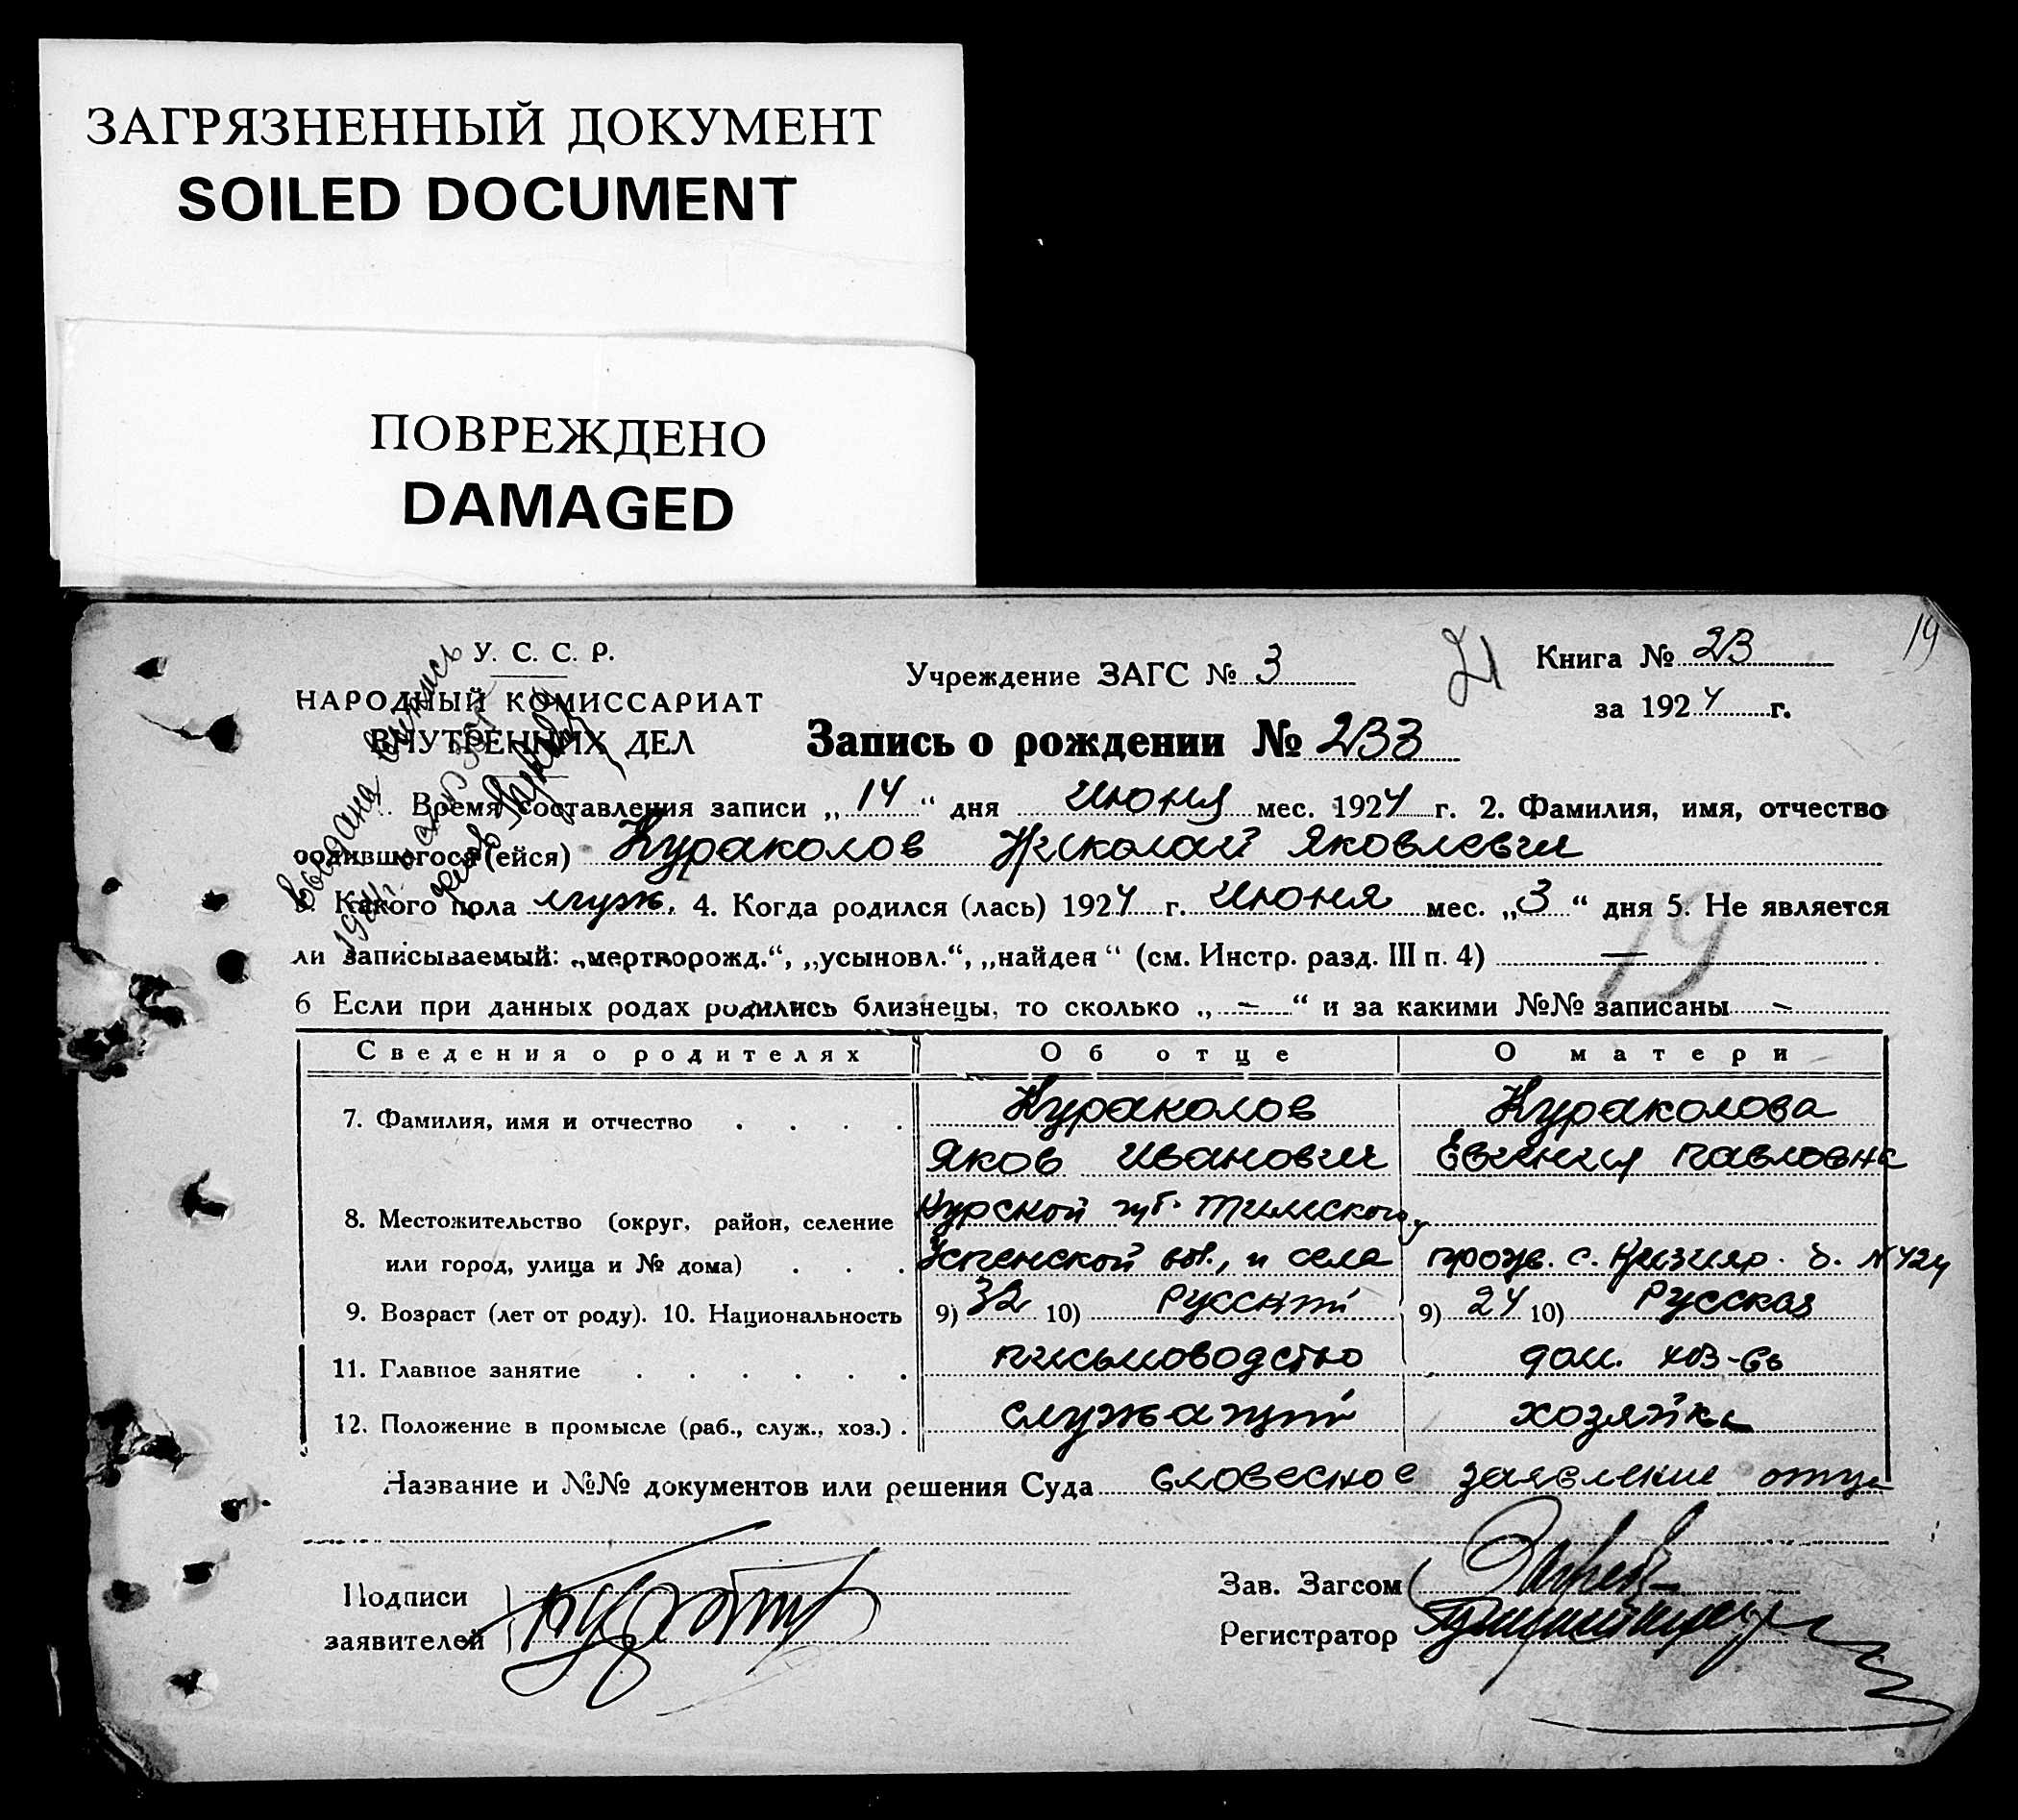 ЗАГРЯЗНЕННЫЙ ДОКУМЕНТ
SOILED DOCUMENT
ПОВРЕЖДЕНО
DAMAGED
19
У. С. С. Р.
НАРОДНЫЙ КОМИССАРИАТ
ВНУТРЕННИХ ДЕЛ
Выдана выпись
Учреждение ЗАГС № 3
21
Книга № 23
за 1924 г.
Запись о рождении № 233
Время составления записи „ 14 “ дня июня мес. 1924 г. 2. Фамилия, имя, отчество
родившегося (ейся) Кураколов Николай Яковлевич
3. Какого пола муж. 4. Когда родился (лась) 1924 г. Июня мес. „ 3 “ дня 5. Не является
ли записываемый: „мертворожд.“, „усыновл.“, „найден“ (см. Инстр. разд. III п. 4) —
19
6 Если при данных родах родились близнецы, то сколько „ – “ и за какими №№ записаны –
Сведения о родителях Об отце О матери
7. Фамилия, имя и отчество Кураколов Кураколова
Яков Иванович Евгения Павловна
8. Местожительство (округ, район, селение Курской губ. Тимского у
или город, улица и № дома) Успенской вол., и села прожв. с. Кизияр. д. № 424
9. Возраст (лет от роду). 10. Национальность 9) 32 10) Русский 9) 24 10) Русская
11. Главное занятие письмоводство дом. хоз-вь
12. Положение в промысле (раб., служ., хоз.) служащий хозяйка
Название и №№ документов или решения Суда словесное заявление отца
Подписи
заявителей
Зав. Загсом
Регистратор